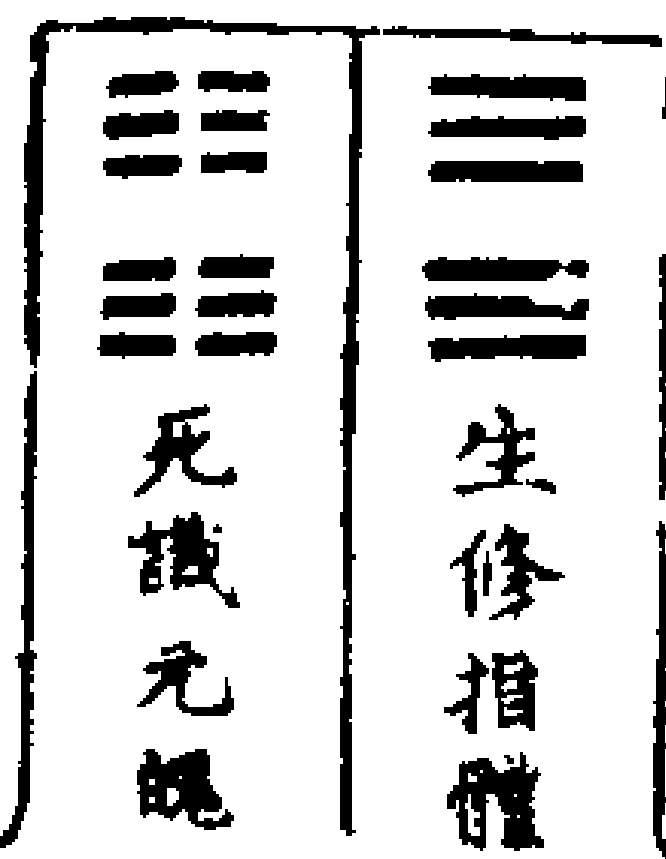 生修指體
死識元魄